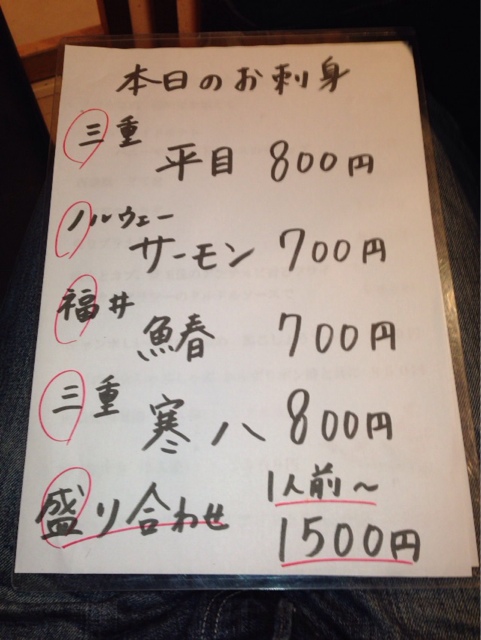 本日のお刺身
三重
平目 800円
ノルウェー
サーモン 700円
福井
鰆 700円
三重
寒八 800円
盛り合わせ 1人前〜
1500円